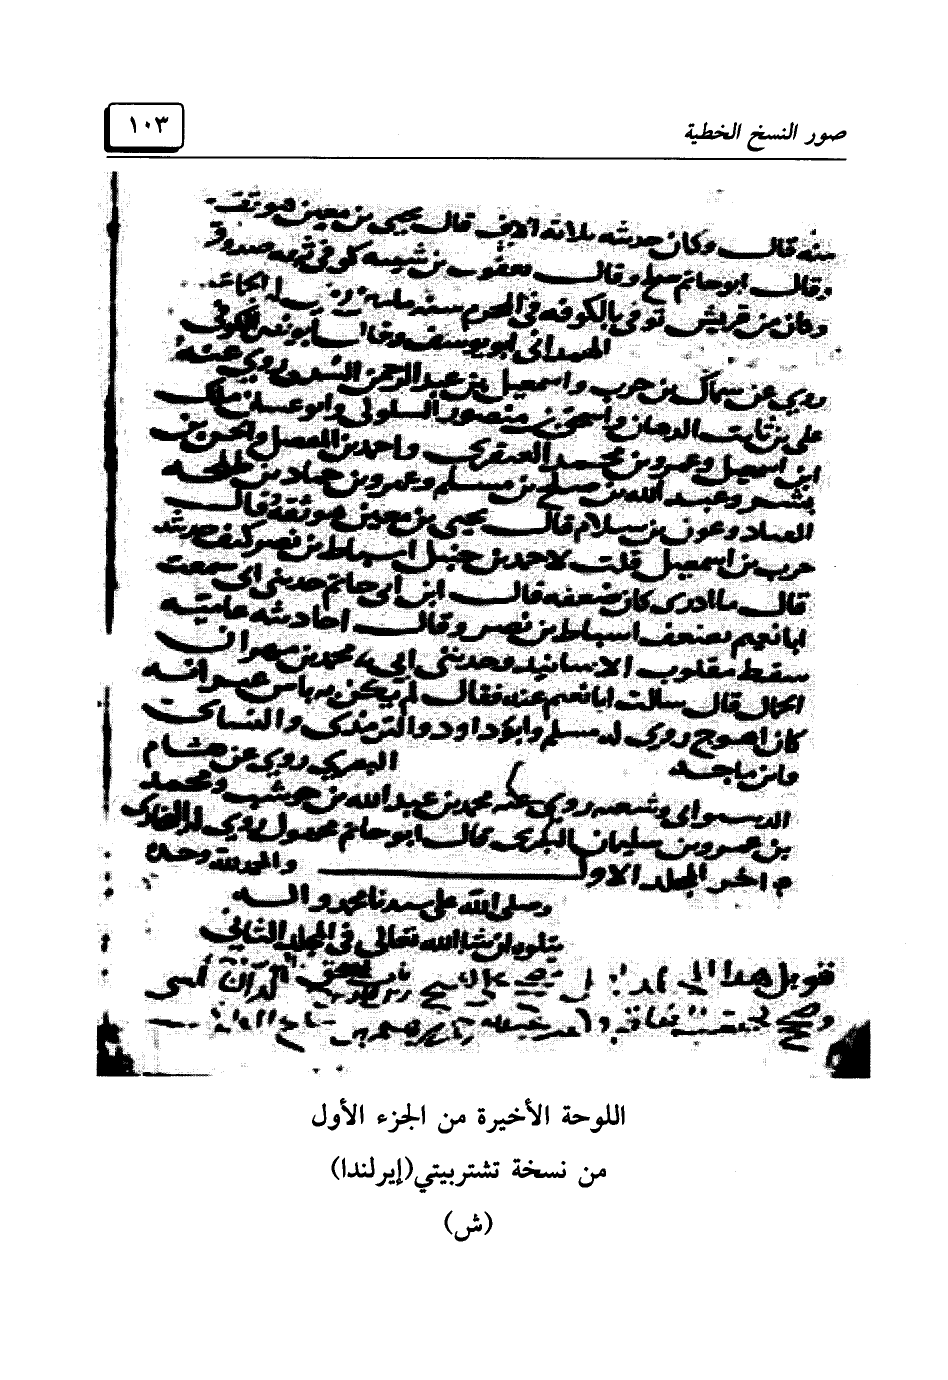 صور النسخ الخطية
١٠٣
منه قال وكان حديثه ثلاثة آلاف قال يحيى بن معين هو ثقة
وقال ابو حاتم صالح وقال يعقوب بن شيبه كوفي ثقه صدوق
وكان من قريش توفي بالكوفه في المحرم سنه مايتين روى له الجماعه
الهمداني ابو يوسف وقال ابو نصر الكوفي
روى عن سماك بن حرب واسمعيل بن عبد الرحمن السدى روى عنه
على بن ثابت الدهان واسحق بن منصور السلولى وابو غسان ملك
ابن اسمعيل وعمرو بن محمد العنقزى واحمد بن المفضل والحسن بن
بشر وعبد الله بن صلح بن مسلم وعمرو بن حماد بن طلحه
القناد وعون بن سلام قال يحيى بن معين هو ثقة وقال
حرب بن اسمعيل قلت لاحمد بن حنبل اسباط بن نصر كيف حديثه
قال ما ادرى كان ضعفه قال ابن ابى حاتم حدثنى ابى سمعت
ابا نعيم يضعف اسباط بن نصر وقال احاديثه عاميه
سقط مقلوب الاسانيد وحدثنى ابى ثنا محمد بن مهران
الجمال قال سالت ابا نعيم عنه فقال لم يكن به باس غير انه
كان اهوج روى له مسلم وابو داود والترمذى والنسائى
وابن ماجه البصرى روى عن هشام
الدستوائى وشعبه روى عنه محمد بن عبد الله بن حوشب ومحمد
بن عمرو بن سليمان البكرى قال ابو حاتم مجهول روى له البخارى
م اخر المجلد الاول والحمد لله وحده
وصلى الله على سيدنا محمد واله
يتلوه ان شا الله تعالى فى المجلد الثانى
قوبل هذا
اللوحة الأخيرة من الجزء الأول
من نسخة تشتربيتي(إيرلندا)
(ش)